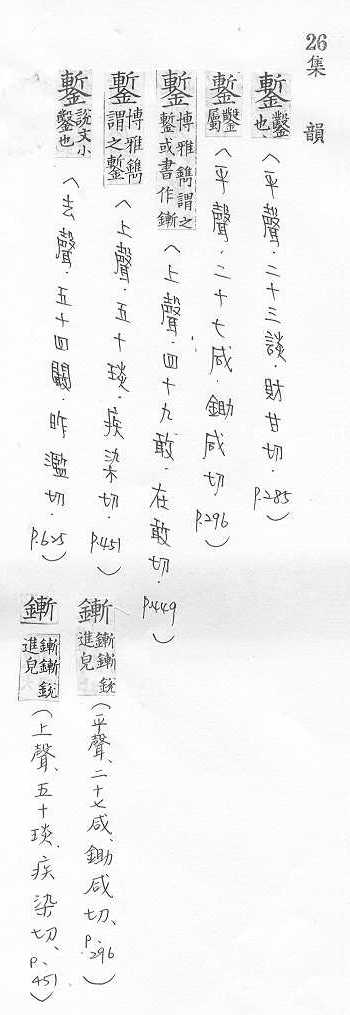 26集韻
鏨鑿也（平聲．二十三談．財甘切．P.285）
鏨鑿屬（平聲．二十七咸．鋤咸切．P.296）
鏨博雅鐫謂之鏨或書作鏩（上聲．四十九敢．在敢切．P.449）
鏨博雅鐫謂之鏨（上聲．五十琰．疾染切．P.451）
鏨說文小鑿也（去聲．五十四闞．昨濫切．P.625）
鏩鏩鏩銳進皃（平聲、二十七咸、鋤咸切、P、296）
鏩鏩鏩銳進皃（上聲、五十琰、疾染切、P、451）